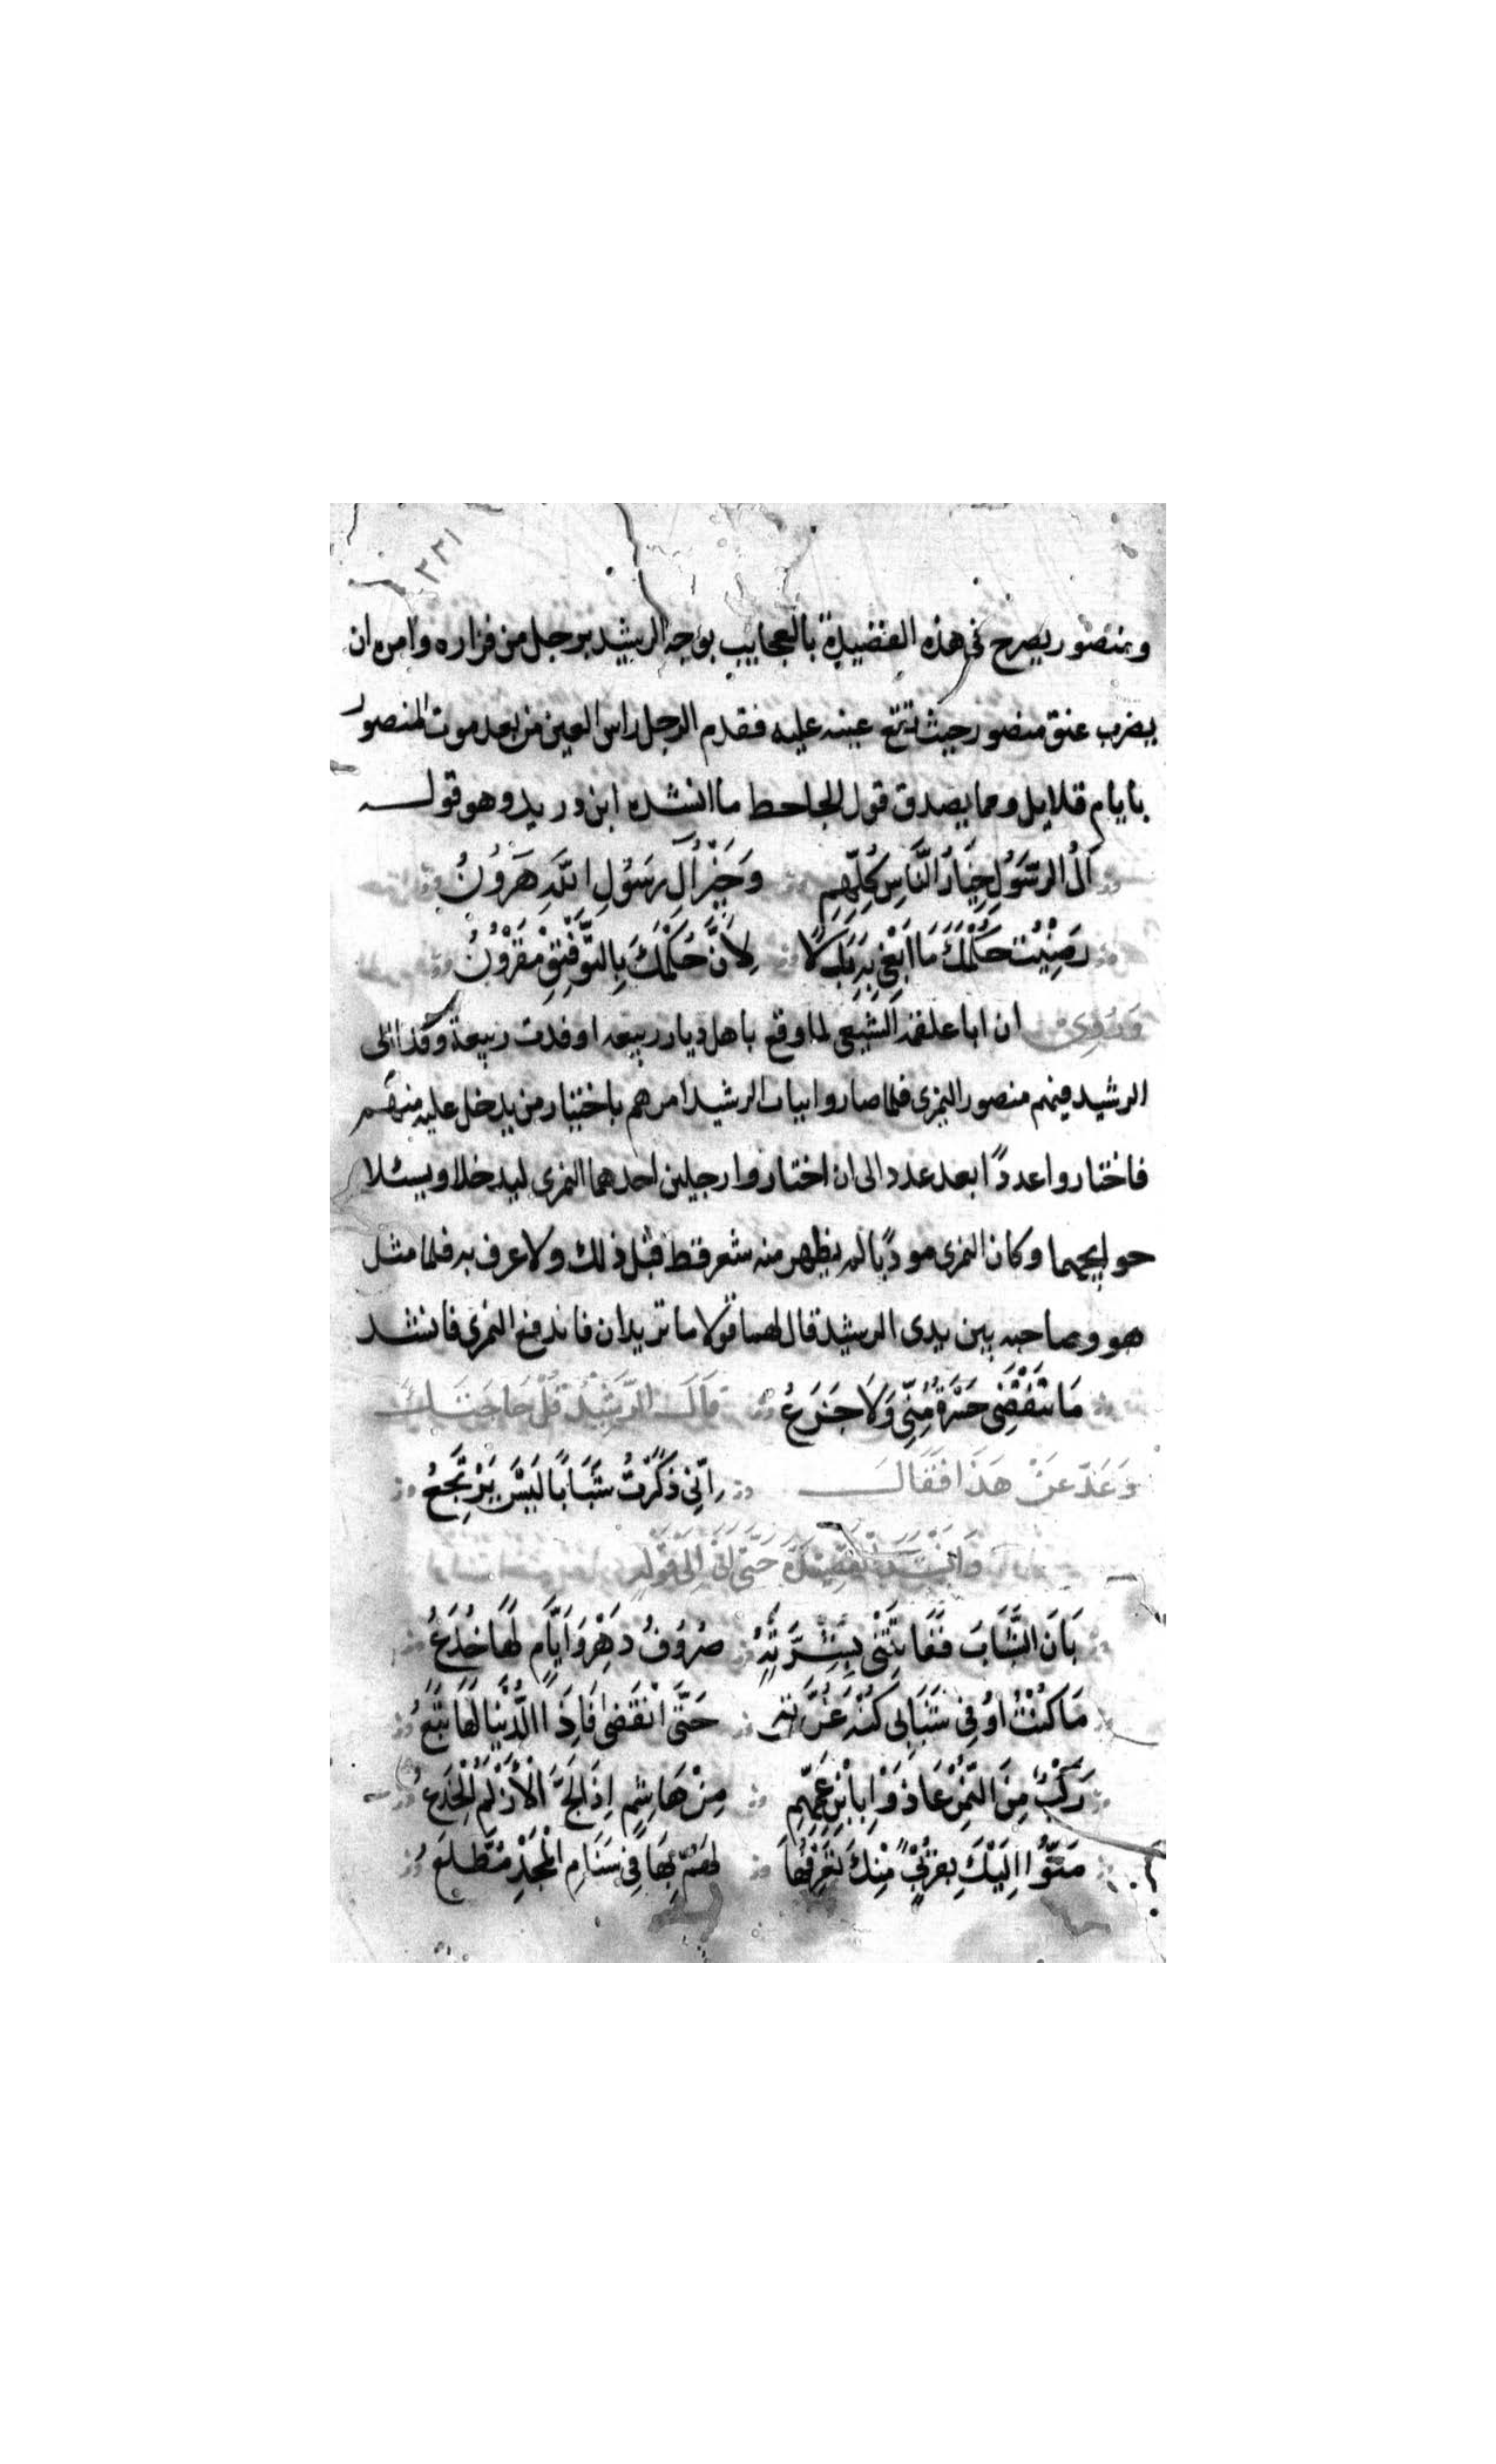 ٢٣١
ومنصور يصرح في هذه القصيدة بالعجايب بوجه الرشيد برجل من فزاره وامره ان
يضرب عنق منصور حيث تقع عينه عليه فقدم الرجل راس العين من بعد موت المنصور
بايام قلايل ومما يصدق قول الجاحط ما انشده ابن دريد وهو قوله
آلُ الرَّسُولِ خِيَارُ النَّاسِ كُلِّهِمِ وَخَيْرُ آلِ رَسُوْلِ اللَّهِ هَرُوْنُ
رَضِيْتُ حُكْمَكَ مَا اَبْغِيْ بِهِ بَدَلًا لِاَنَّ حُكْمَكَ بِالتَّوْفِيْقِ مَقْرُوْنُ
وَرُوِيَ ان ابا علقمه الشيعي لما اوقع باهل ديار ربيعه اوفدت ربيعة وفدا الى
الرشيد فيهم منصور النمري فلما صاروا ابباب الرشيد امرهم باختيار من يدخل عليه منهم
فاختاروا عددًا بعد عدد الى ان اختاروا رجلين احدهما النمري ليدخلا ويسئلا
حوايجهما وكان النمري مودبًا لم يظهر منه شعر قط قبل ذلك ولا عرف به فلما مثل
هو وصاحبه بين يدي الرشيد قال لهما قولا ما تريدان فاندفع النمري فانشد
مَا تَنْقَضِي حَسْرَةٌ مِّنِّي وَلَا جَزَعُ قَالَ الرَّشِيْدُ قُلْ حَاجَتَكَ
وَعَدِّ عَنْ هَذَا فَقَالَ اِنِّي ذَكَرْتُ شَبَابًا لَيْسَ يَرْتَجِعُ
وَاَنْشَدَ الْقَصِيْدَةَ حَتَّى اَتَى اِلَى قَوْلِهِ
بَانَ الشَّبَابُ فَفَاتَتْنِي بِشِرَّتِهِ صُرُوْفُ دَهْرٍ وَاَيَّامٍ لَهَا خُدَعُ
مَا كُنْتُ اُوْفِي شَبَابِي كُنْهَ غُرَّتِهِ حَتَّى انْقَضَى فَاِذَا الدُّنْيَا لَهَا تَبَعُ
رَكْبٌ مِنَ النَّمِرِ عَاذَوْا بِابْنِ عَمِّهِمِ مِنْ هَاشِمٍ اِذَا لَجَّ الْاَزْلَمُ الْجَذَعُ
مَتُّوْا اِلَيْكَ بِقُرْبٍ مِنْكَ تَعْرِفُهَا لَهُمْ بِهَا فِي سَنَامِ الْمَجْدِ مُطَّلَعُ